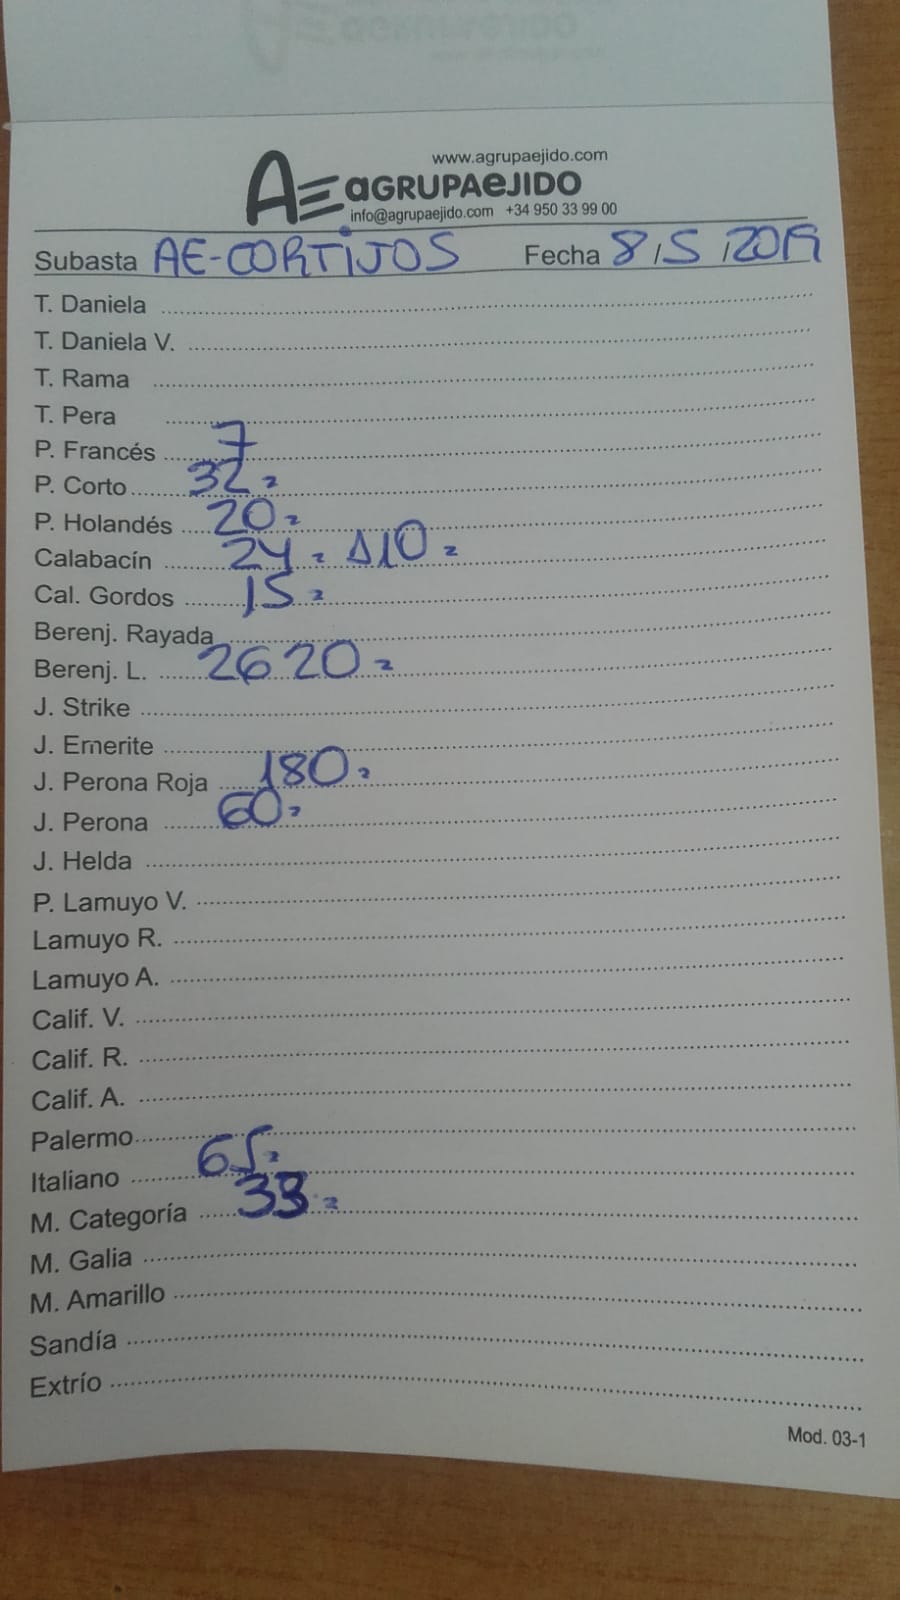 www.agrupaejido.com
AE aGRUPAeJIDO
info@agrupaejido.com +34 950 33 99 00
Subasta AE-CORTIJOS Fecha 8/5/2019
T. Daniela
T. Daniela V.
T. Rama
T. Pera
P. Francés 7
P. Corto 32 2
P. Holandés 20 2
Calabacín 24 2 Δ10 2
Cal. Gordos 15 2
Berenj. Rayada
Berenj. L. 26 20 2
J. Strike
J. Emerite
J. Perona Roja 180 2
J. Perona 60 2
J. Helda
P. Lamuyo V.
Lamuyo R.
Lamuyo A.
Calif. V.
Calif. R.
Calif. A.
Palermo
Italiano 65 2
M. Categoría 33 2
M. Galia
M. Amarillo
Sandía
Extrío
Mod. 03-1